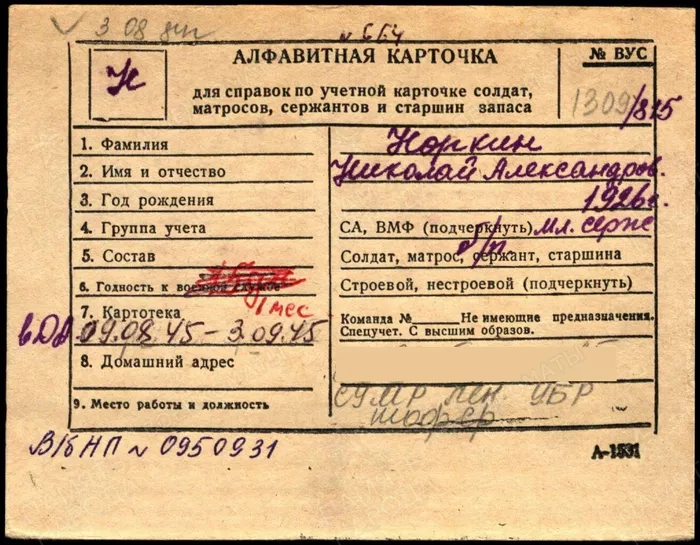 3 08
№ 664
Н
АЛФАВИТНАЯ КАРТОЧКА
№ ВУС
для справок по учетной карточке солдат,
матросов, сержантов и старшин запаса
1309/815
1. Фамилия
Норкин
2. Имя и отчество
Николай Александров.
3. Год рождения
1926г.
4. Группа учета
СА, ВМФ (подчеркнуть) Мл. серж
5. Состав
р/п
Солдат, матрос, сержант, старшина
6. Годность к военной службе
Строевой, нестроевой (подчеркнуть)
1 мес
7. Картотека
Команда № Не имеющие предназначения.
Спецучет. С высшим образов.
в ДА 09.08.45 – 3.09.45
8. Домашний адрес
СУМР УБР
шофер
9. Место работы и должность
В/б НП № 0950931
А-1531